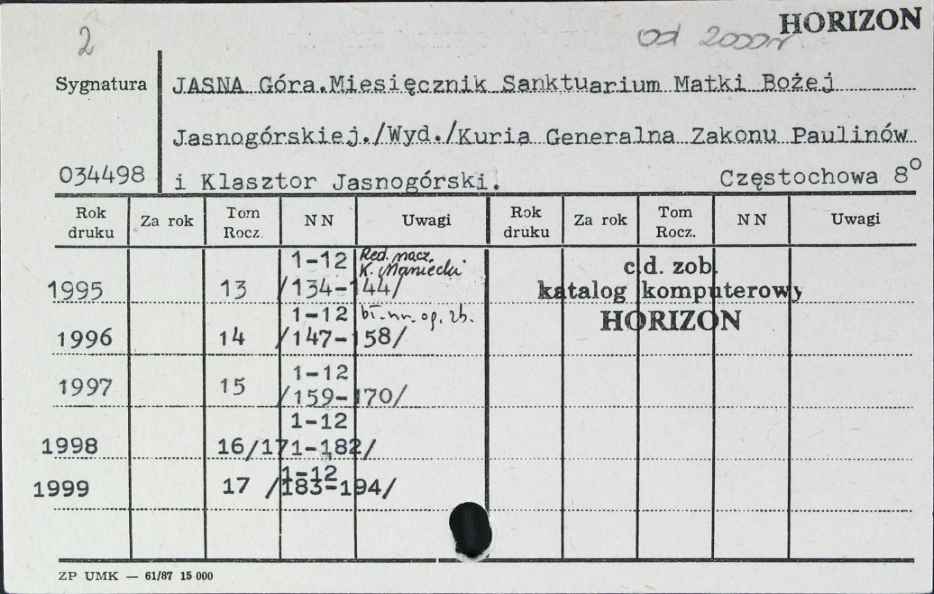 2 od 2000r HORIZON
Sygnatura JASNA Góra.Miesięcznik Sanktuarium Matki Bożej
Jasnogórskiej./Wyd./Kuria Generalna Zakonu Paulinów
034498 i Klasztor Jasnogórski. Częstochowa 8°
Rok druku Za rok Tom Rocz. N N Uwagi Rok druku Za rok Tom Rocz. N N Uwagi
1-12 Red. nacz.
K. Maniecki
1995 13 /134-144/
1-12 bł. nr. op. zb.
1996 14 /147-158/
1-12
1997 15 /159-170/
1-12
1998 16/171-182/
1-12
1999 17 /183-194/
c.d. zob.
katalog komputerowy
HORIZON
ZP UMK — 61/87 15 000